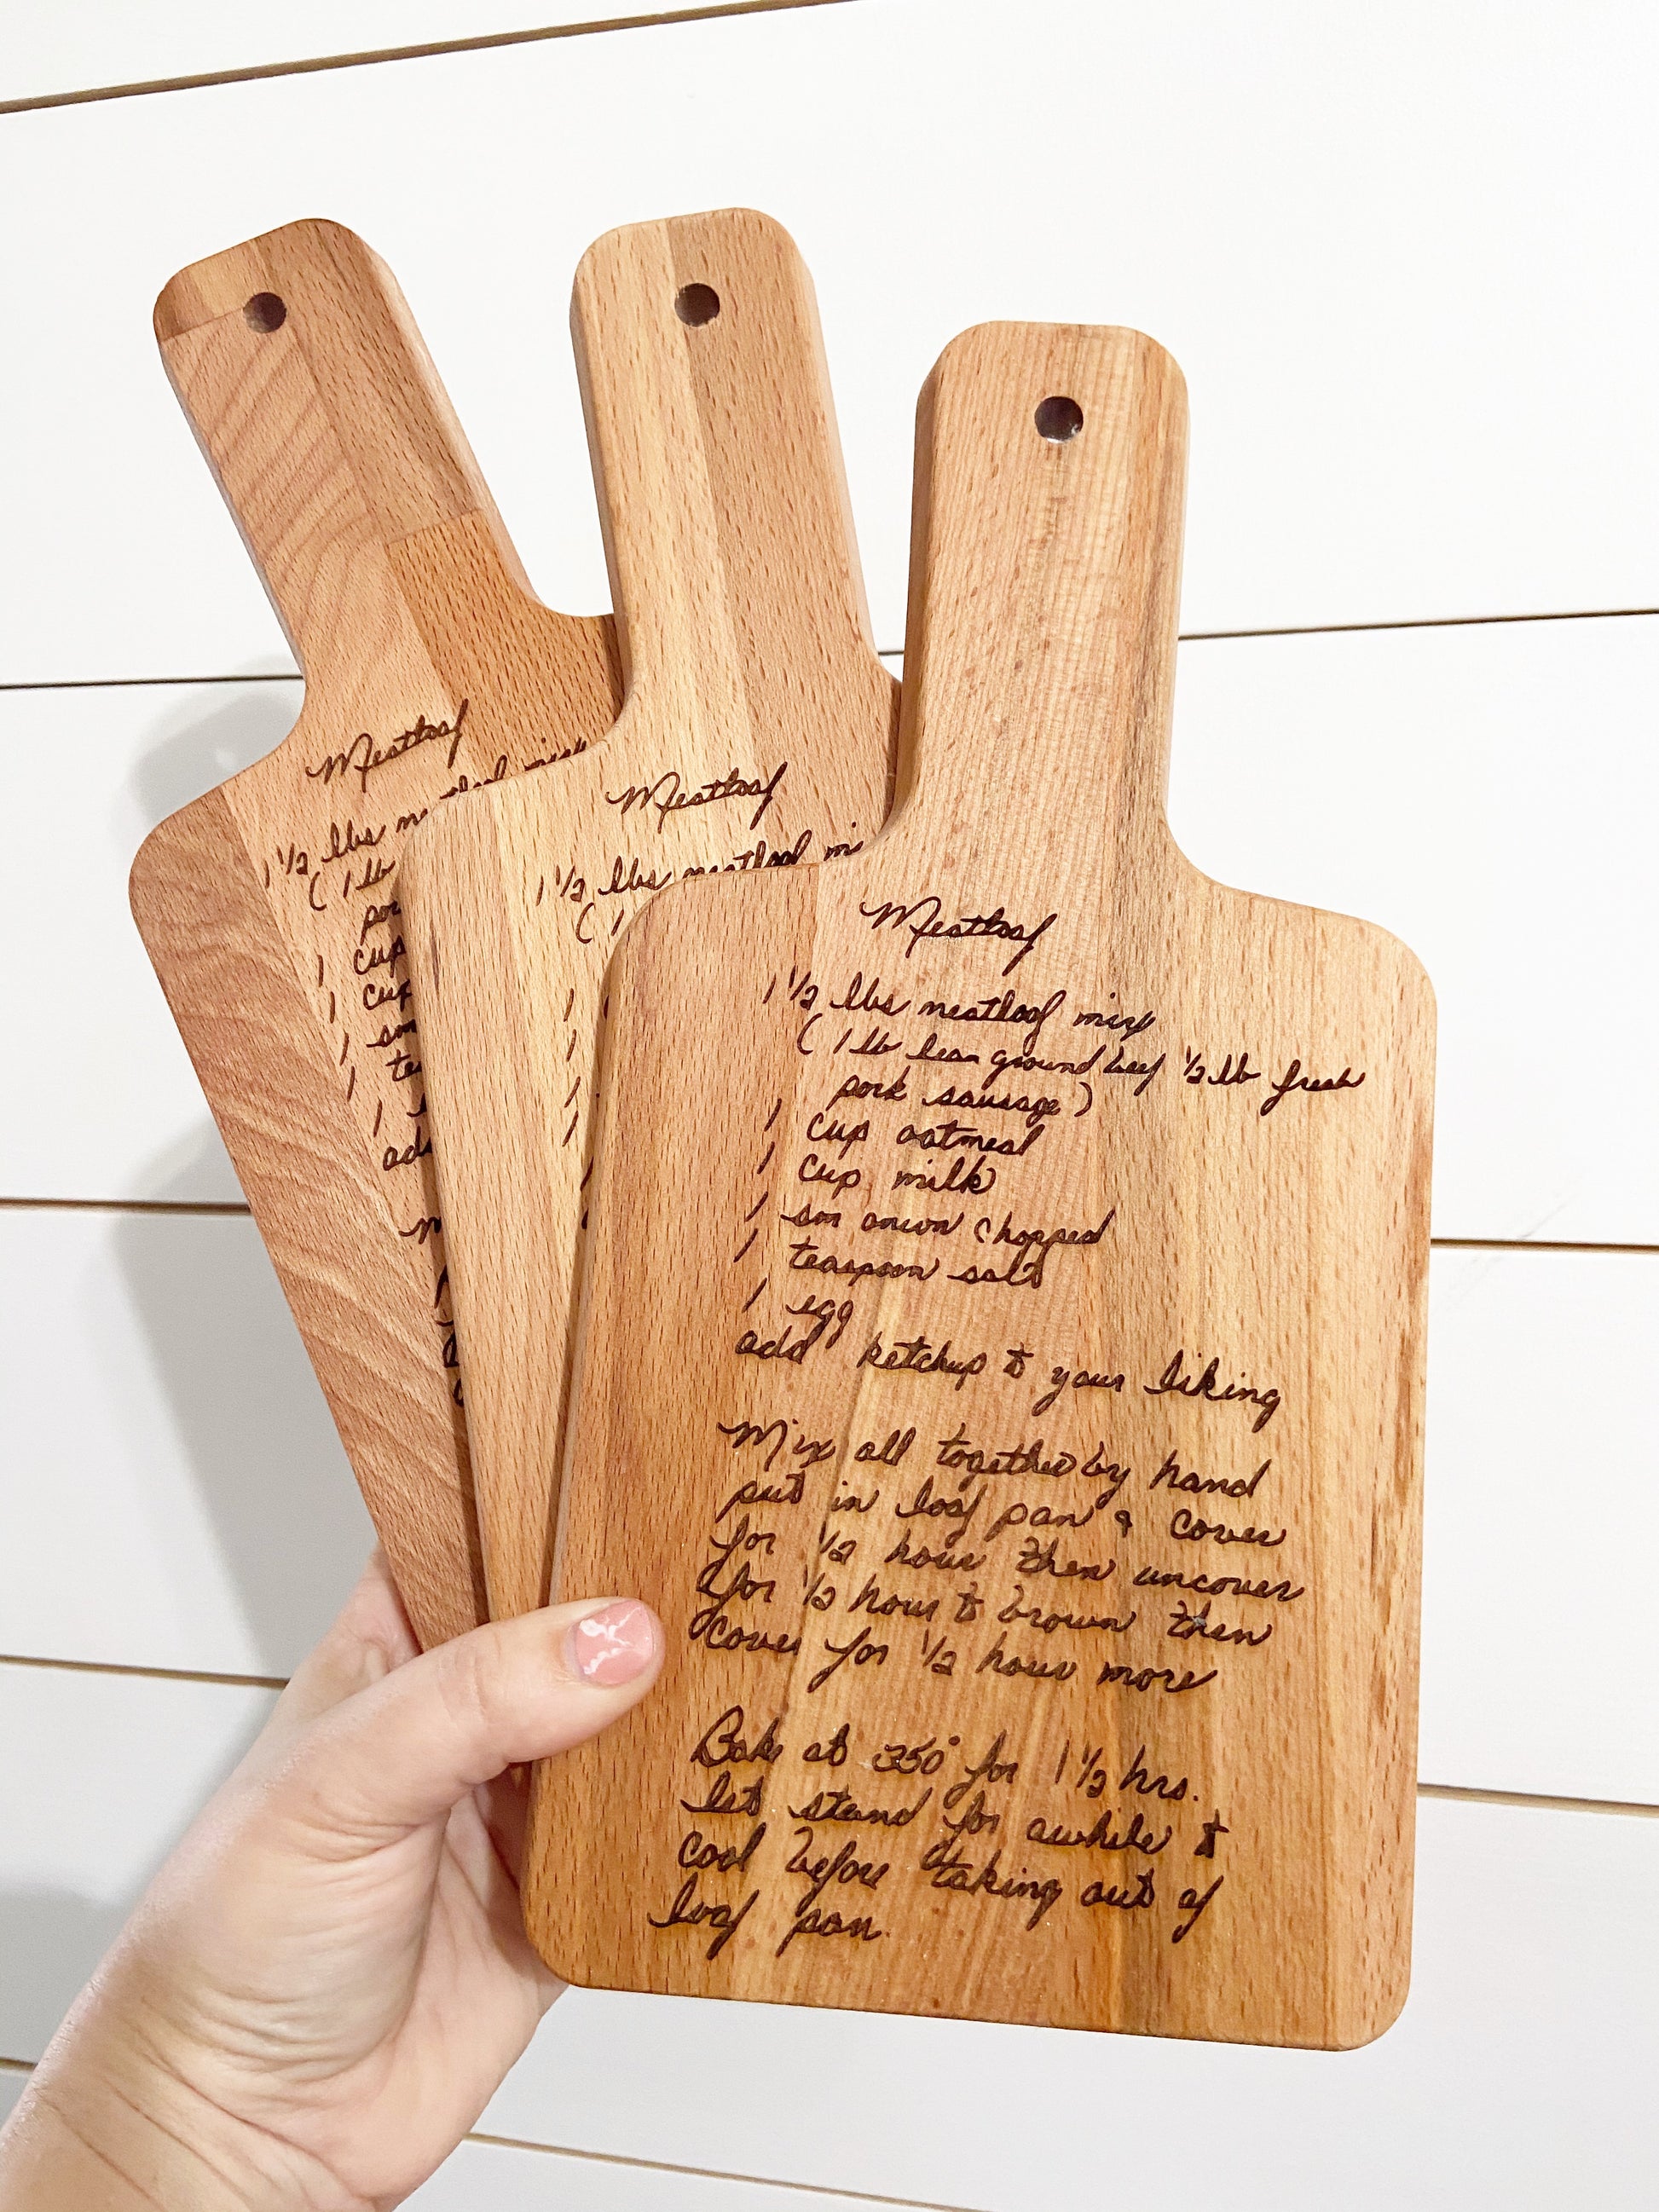 Meatloaf
1 1/2 lbs m
( 1 lb
por
1 cup
1 cup
1 sm
1 te
1
add
M
Meatloaf
1 1/2 lbs meatloaf mi
( 1
1
1
1
1
Meatloaf
1 1/2 lbs meatloaf mix
( 1 lb lean ground beef 1/2 lb fresh
pork sausage )
1 cup oatmeal
1 cup milk
1 sm onion chopped
1 teaspoon salt
1 egg
add ketchup to your liking
Mix all together by hand
put in loaf pan & cover
for 1/2 hour then uncover
for 1/2 hour to brown then
cover for 1/2 hour more
Bake at 350° for 1 1/2 hrs.
let stand for awhile to
cool before taking out of
loaf pan.